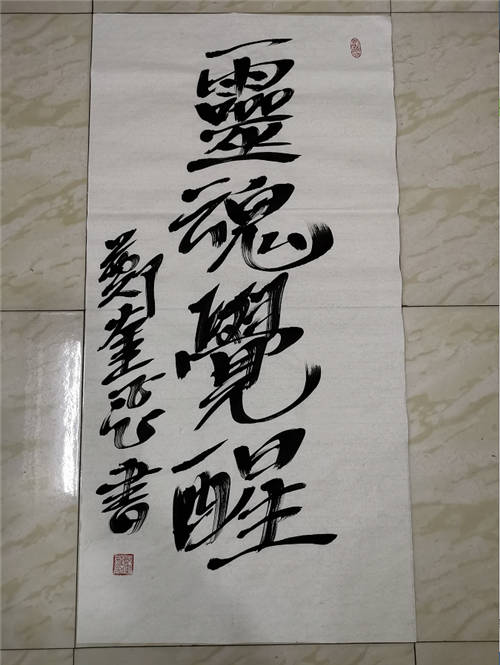 靈魂覺醒
鄭奎飛書